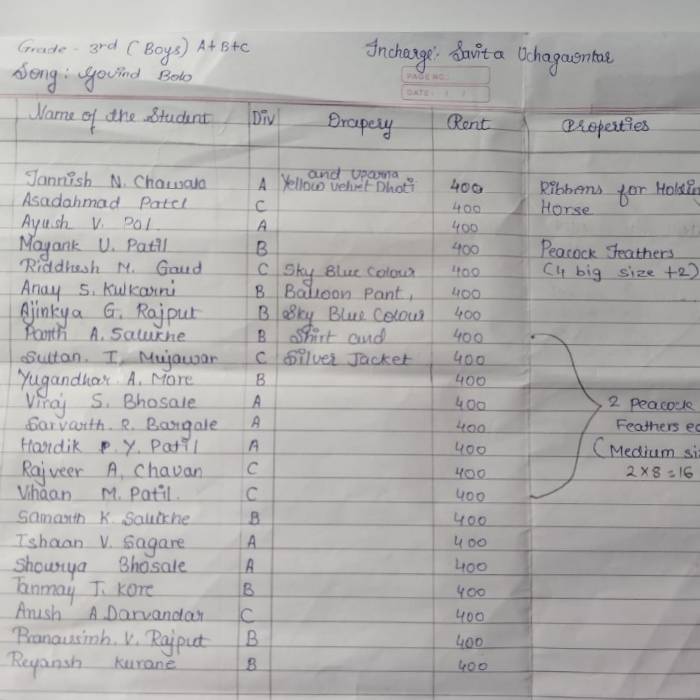 Grade - 3rd (Boys) A+B+C Incharge: Savita Uchagaonkar
Song: Govind Bolo
PAGE NO.:
DATE: / /
Name of the Student Div Drapery Rent Properties
and Uparna
Tannish N. Chawala A Yellow velvet Dhoti 400 Ribbons for Holding
Asadahmad Patel C 400 Horse
Ayush V. Pol A 400
Mayank U. Patil B 400 Peacock Feathers
Riddhesh M. Gaud C Sky Blue Colour 400 (4 big size +2)
Anay S. Kulkarni B Balloon Pant, 400
Ajinkya G. Rajput B Sky Blue Colour 400
Parth A. Salukhe B Shirt and 400
Sultan. I. Mujawar C Silver Jacket 400
Yugandhar. A. More B 400
Viraj S. Bhosale A 400 2 Peacock
Sarvarth. R. Bargale A 400 Feathers
Hardik P. Y. Patil A 400 (Medium
Rajveer A. Chavan C 400 2x8=16
Vihaan M. Patil. C 400
Samarth K. Salukhe B 400
Ishaan V. Sagare A 400
Shourya Bhosale A 400
Tanmay T. Kore B 400
Arush A Darvandar C 400
V. Rajput B 400
Reyansh Kurane B 400